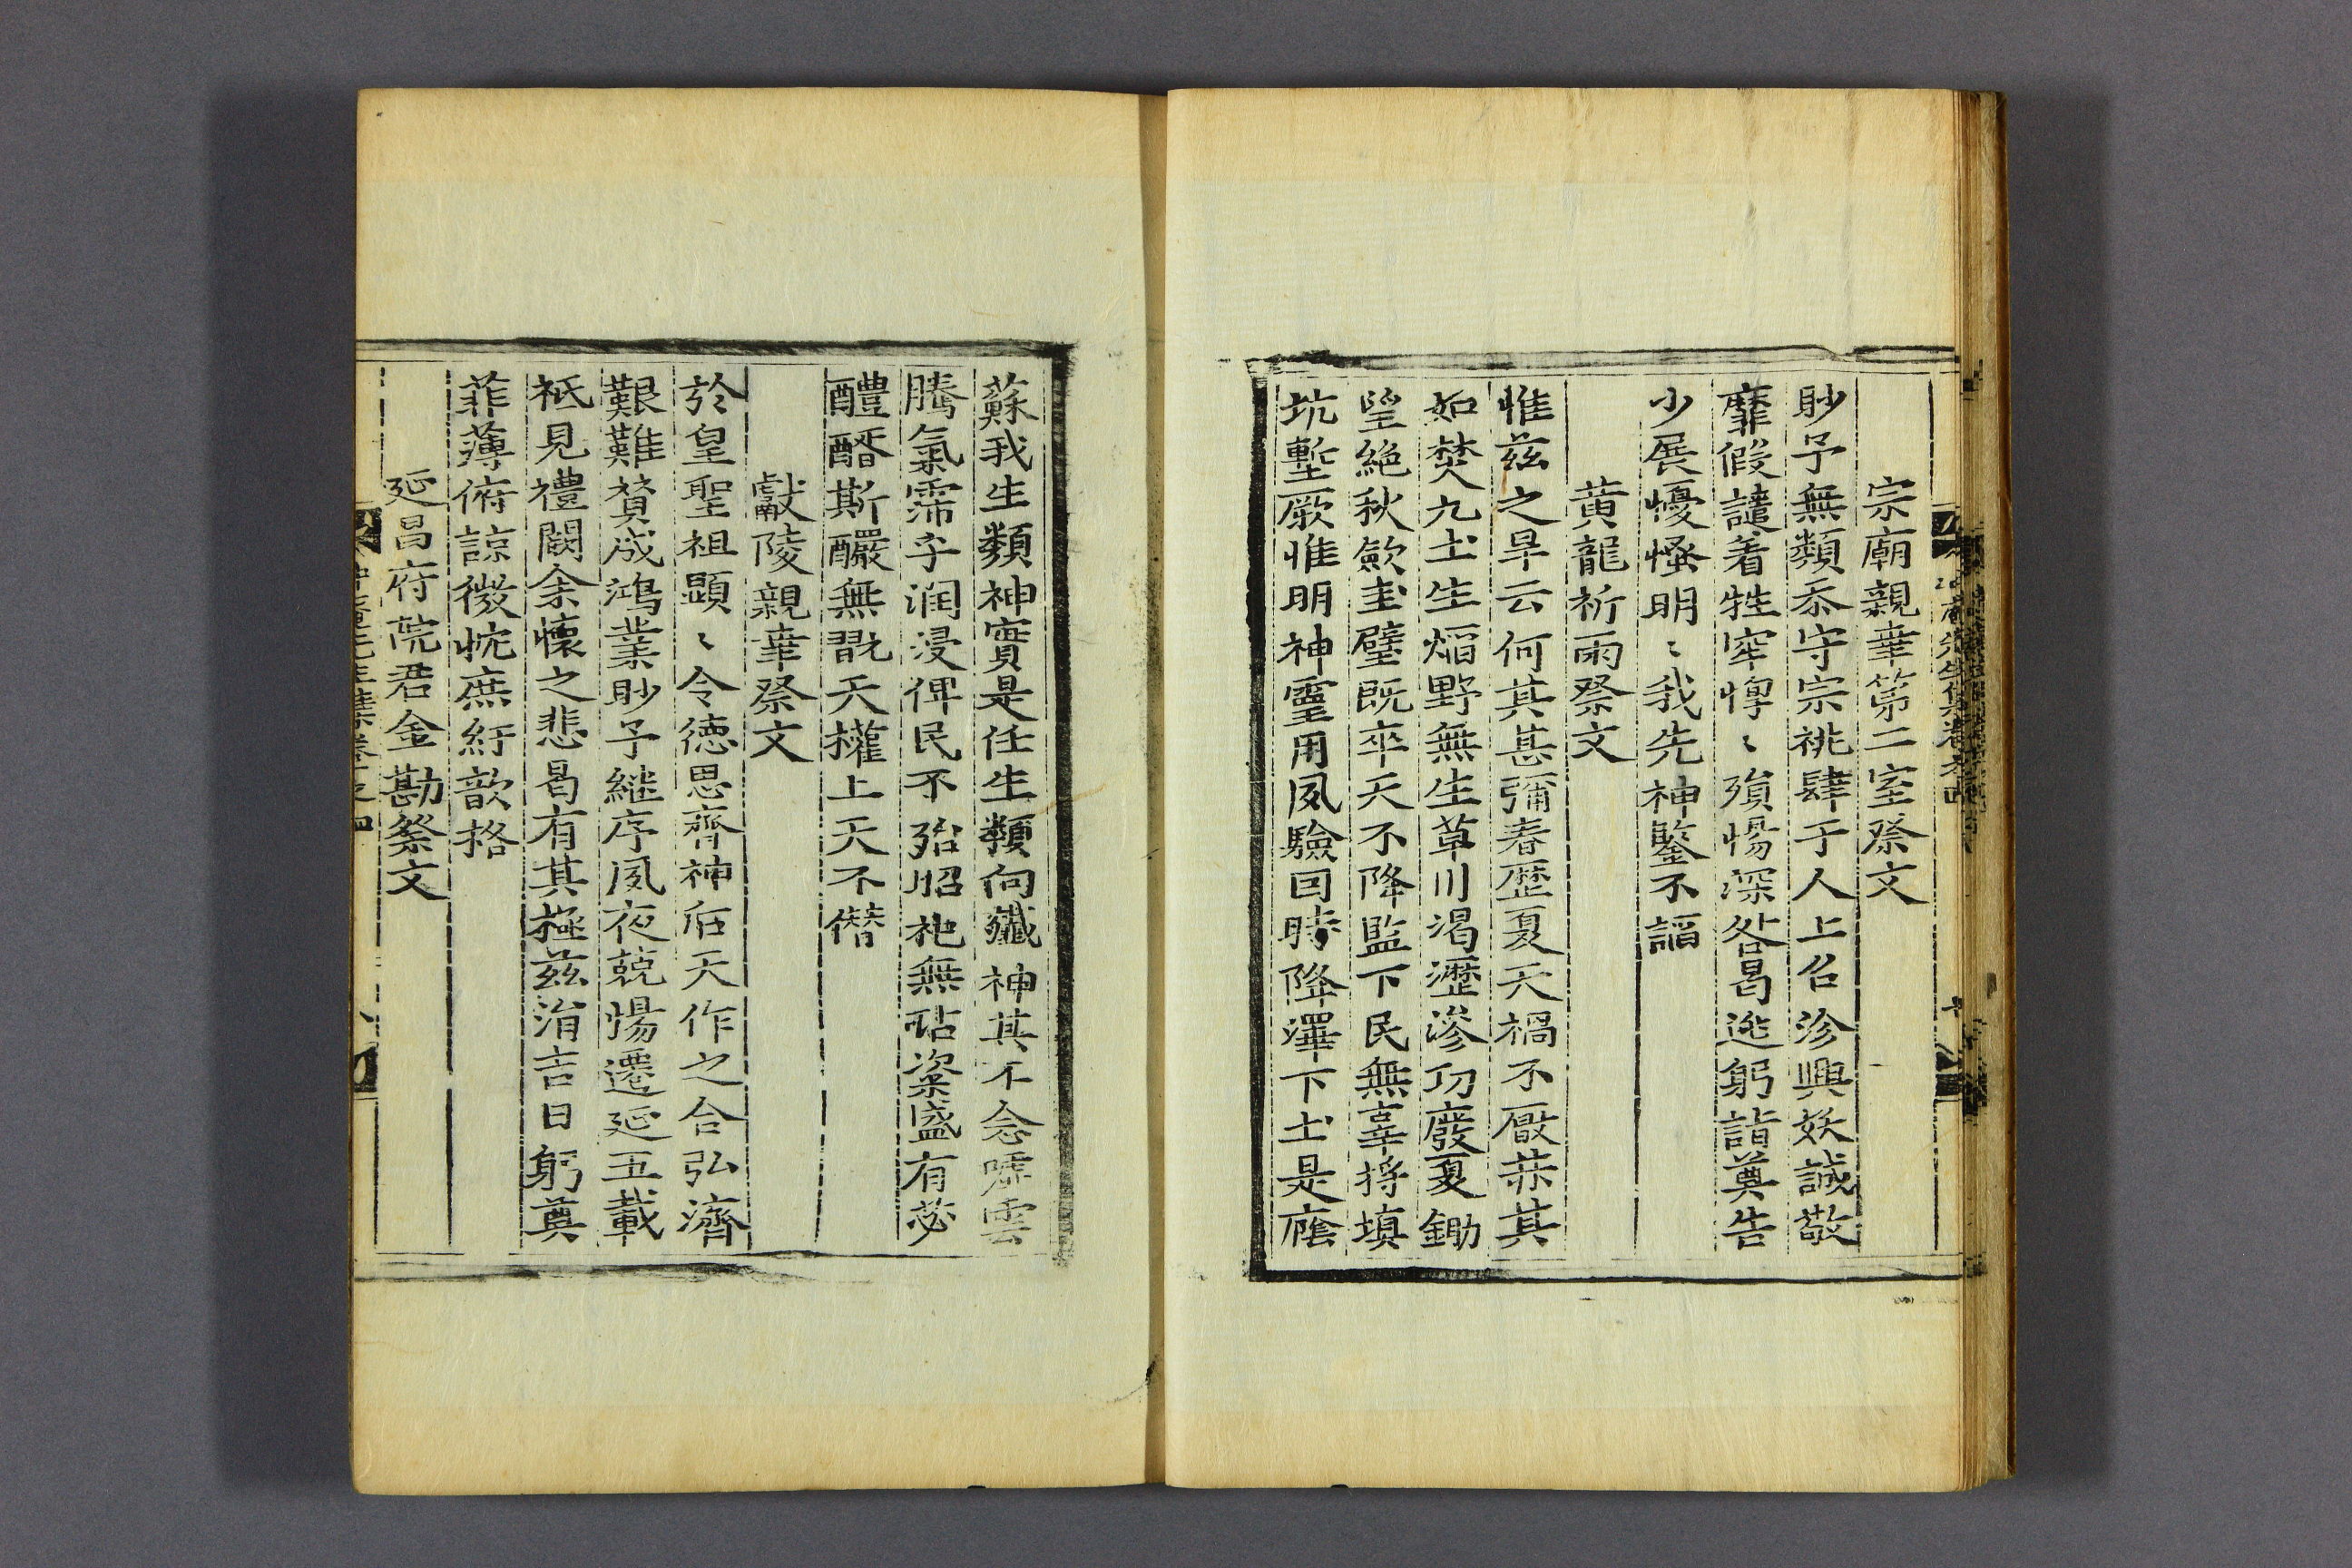 宗廟親幸第二室祭文
眇予無類忝守宗祧肆于人上召沴興妖誠敬
靡假譴着牲牢慱〻殞惕深咎曷逃躬詣奠告
少展懮慅明〻我先神鑒不謟
黄龍祈雨祭文
惟兹之旱云何其甚彌春歷夏天禍不厭莽其
如焚九土生熖野無生草川渴瀝滲功廢夏鋤
望絶秋歛圭璧既卒天不降監下民無辜捋填
坑壍厥惟明神靈用夙驗回時降澤下土是廕
蘇我生類神實是任生類向殱神其不念噓雲
騰氣霈乎润浸俾民不殆昭祀無玷粢盛有苾
醴醑斯釅無翫天權上天不僭
獻陵親幸祭文
於皇聖祖顕〻令德思齊神后天作之合弘濟
艱難賛成鴻業眇予継序夙夜兢惕遷延五載
祗見禮闕余懷之悲曷有其極兹涓吉日躬奠
菲薄俯諒微忱庶紆歆格
延昌府院君金勘祭文